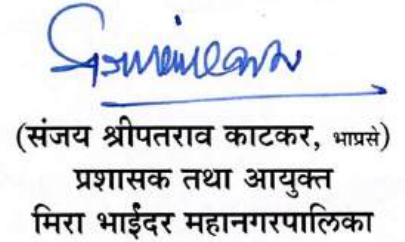 (संजय श्रीपतराव काटकर, भाप्रसे)
प्रशासक तथा आयुक्त
मिरा भाईंदर महानगरपालिका